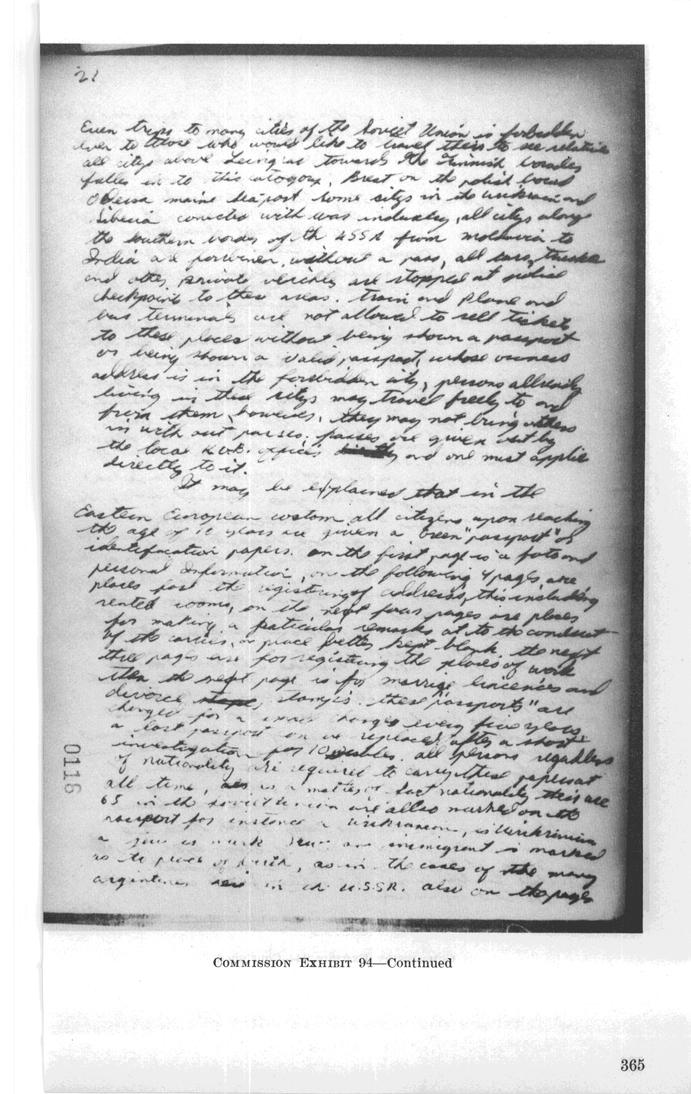 21
Even trips to many cities of the Soviet Union is forbidden
even to those who would like to travel there to see relative
all citys above Leningrad towards the Finnish border
falles in to this catogory, Brest on the polish bord
Odessa maine seaport some sitys in the urkraine and
Siberia conected with war industry, all citys along
the southern border of th USSR from moldavia to
India are forbidden without a pass, all cars, trucks
and other private veichles are stopped at police
checkpoints to these areas. Train and plane and
bus terminals are not allowed to sell tickets
to these places without being shown a passport
or being shown a valid passport, whose owners
address is in the forbidden city, persons allready
living in these sitys may travel freely to and
from them, however, they may not bring others
in with out passes; passes are given out by
the local offices and one must applie
directly to it.
It may be explained that in the
Eastern European custom all citizens upon reaching
the age of 16 years are given a Green "passport" or
identifacation papers. on the first page is a foto and
personal Information, on the following 4 pages are
places for the registering of address, this including
rented rooms, on the next four pages are places
for making a particular remarks at to the conduct
of the carrier, a place better kept blank, the next
three pages are for registering the places of work
then the next page is for marrige liecences and
divorce stamps. these "passports" are
changed for a small charge every five years,
a lost passport can be replaced after a short
investigation for 10 rubles. all persons regardless
of nationality are required to carry these papers at
all times, is a matter of fact nationality, there are
65 in the Soviet Union are allso marked on the
passport for instance a Urikranian, is Urikrinian
a jew is mark Jew an immigrant is marked
as to place of birth, as in the cases of the many
argentines in th U.S.S.R. also on the pages
0116
COMMISSION EXHIBIT 94—Continued
365